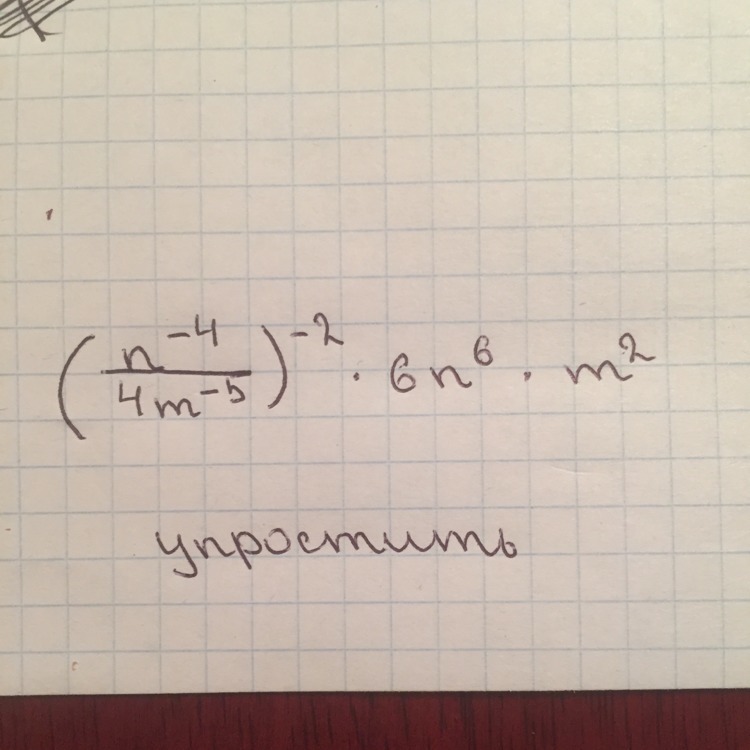 (n⁻⁴/4m⁻⁵)⁻² · 6n⁶ · m²
упростить